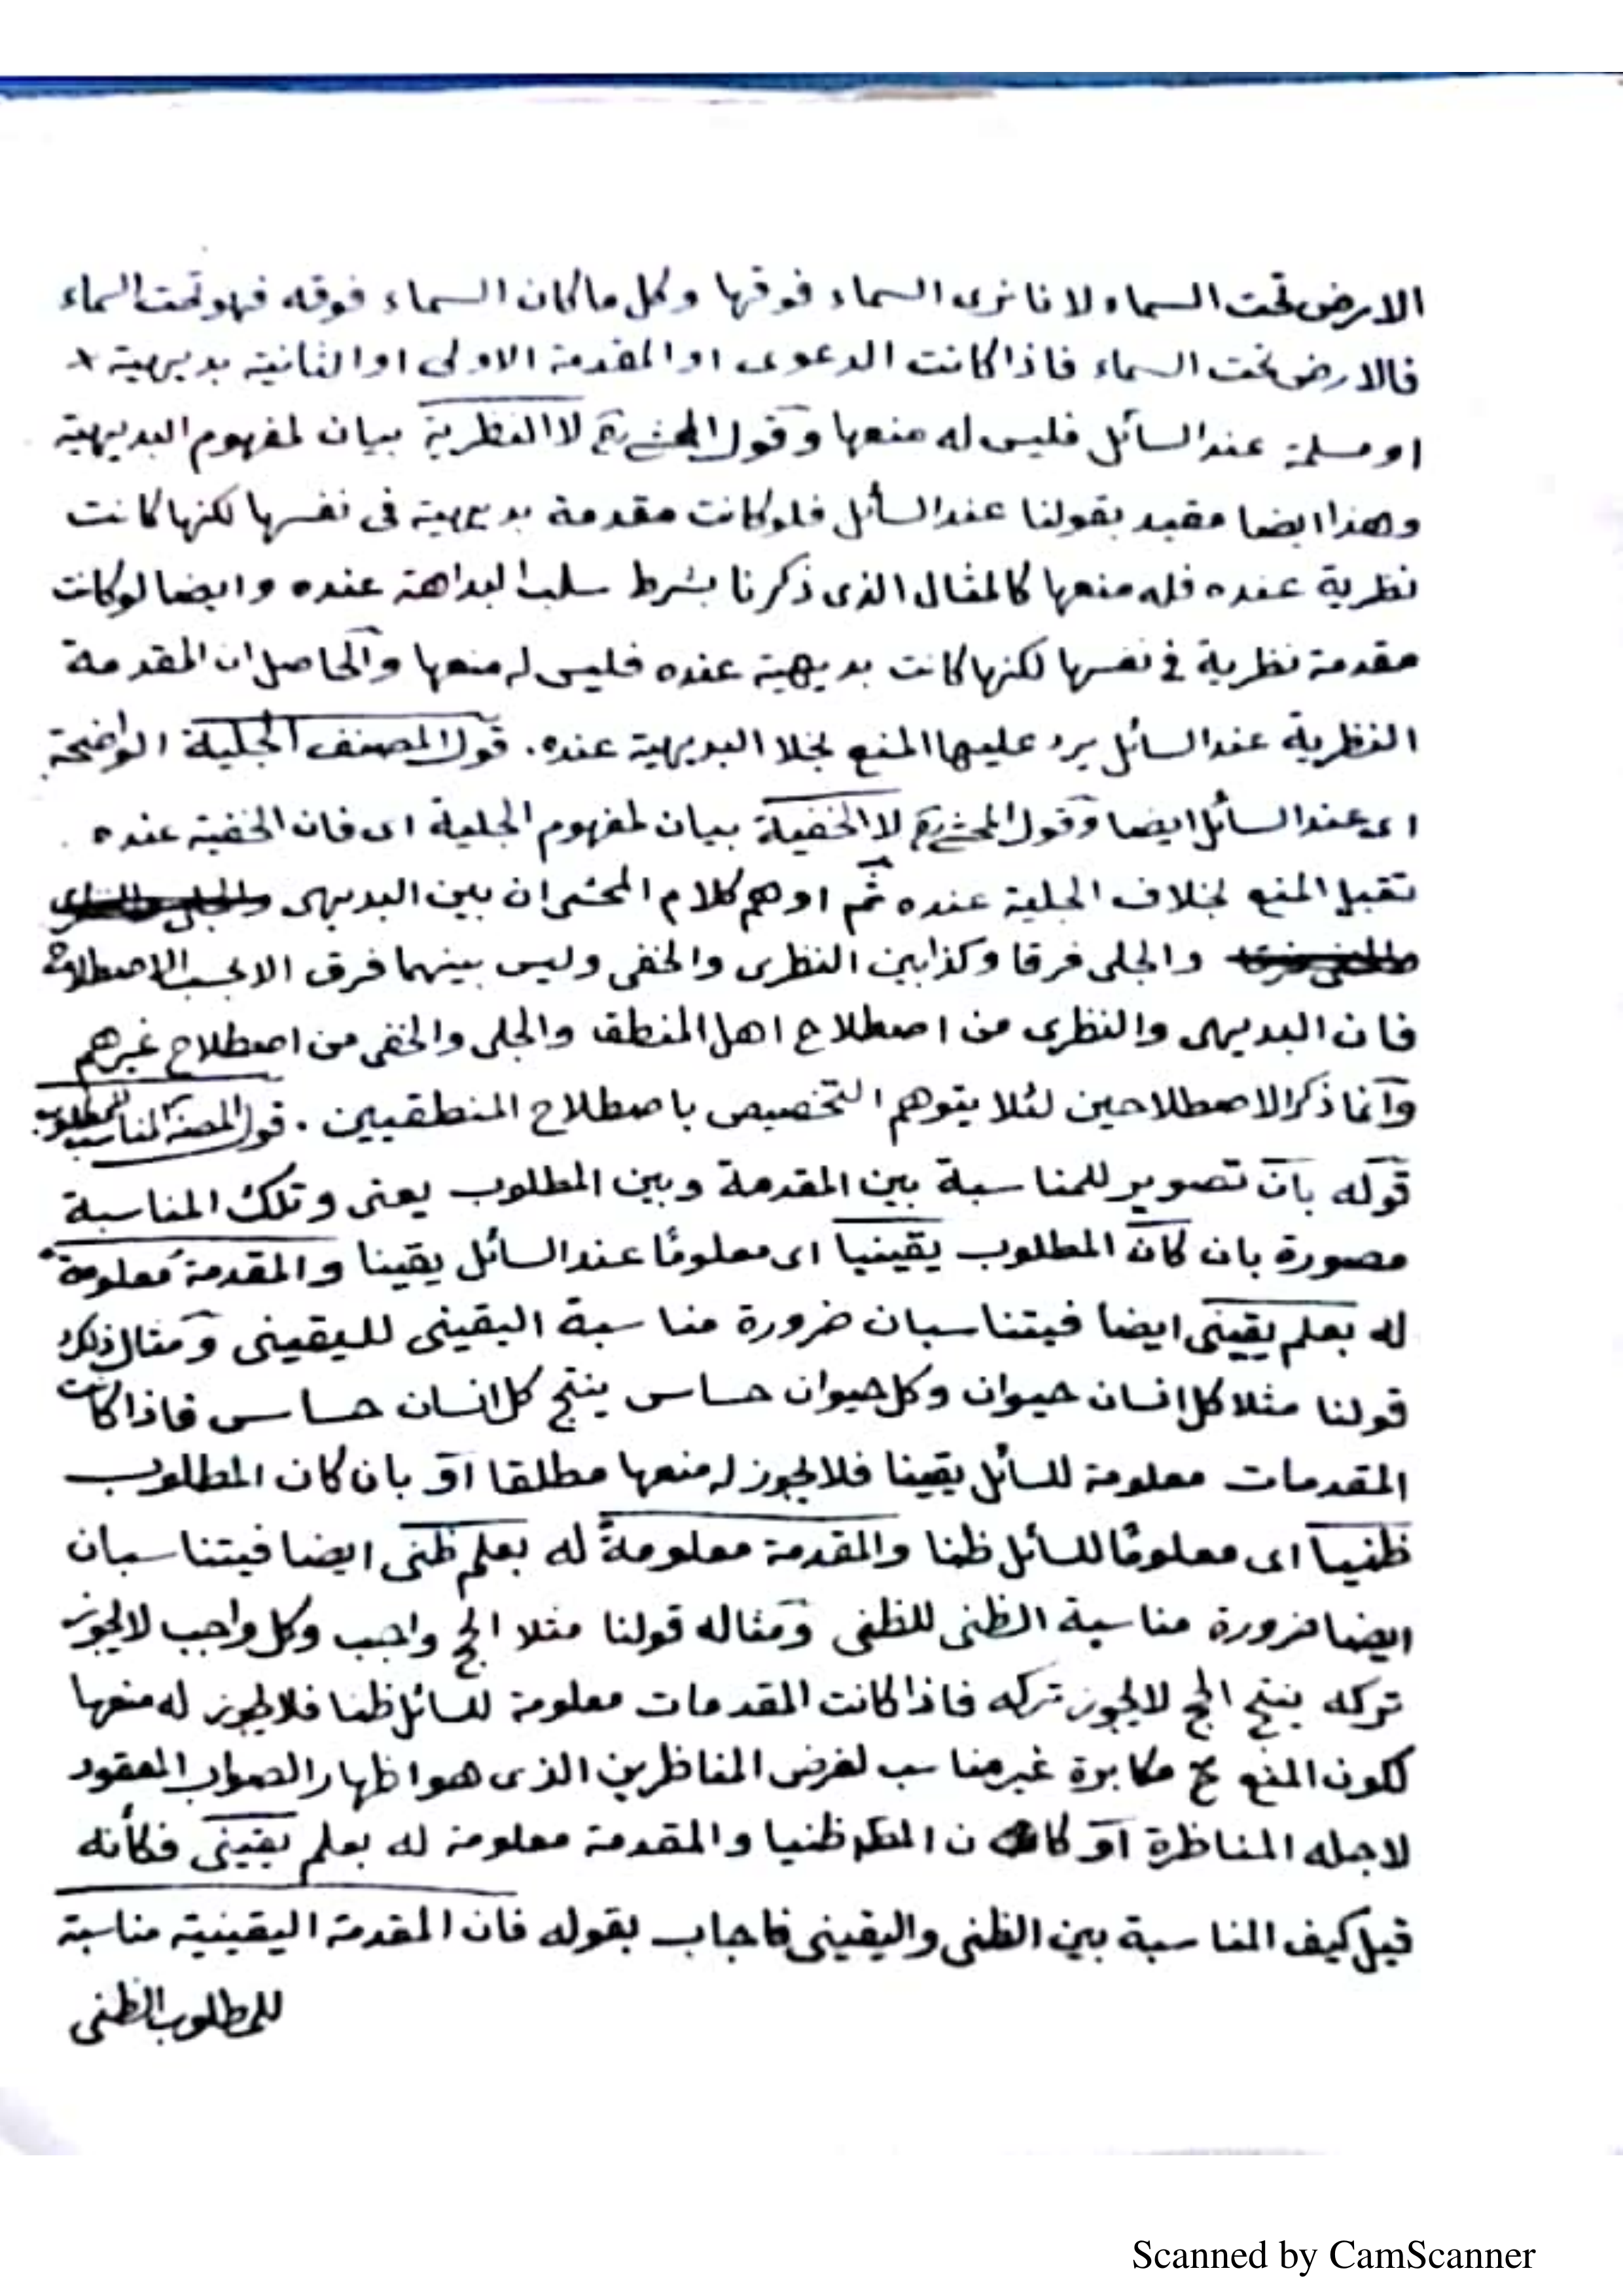 الارض تحت السماء لانا نرى السماء فوقها وكل ما كان السماء فوقه فهو تحت السماء
فالارض تحت السماء فاذا كانت الدعوى او المقدمة الاولى او الثانية بديهية
او مسلمة عند السائل فليس له منعها وقول المحشى رح لا النظرية بيان لمفهوم البديهية
وهذا ايضا مقيد بقولنا عند السائل فلو كانت مقدمة بديهية فى نفسها لكنها كانت
نظرية عنده فله منعها كالمثال الذى ذكرنا بشرط سلب البداهة عنده وايضا لو كانت
مقدمة نظرية فى نفسها لكنها كانت بديهية عنده فليس له منعها والحاصل ان المقدمة
النظرية عند السائل يرد عليها المنع بخلا البديهية عنده. قول المصنف الجلية الواضحة
اى عند السائل ايضا وقول المحشى رح لا الخفية بيان لمفهوم الجلية اى فان الخفية عنده
تقبل المنع بخلاف الجلية عنده ثم اوهم كلام المحشى ان بين البديهى
والجلى فرقا وكذا بين النظرى والخفى وليس بينهما فرق الا بحسب الاصطلاح
فان البديهى والنظرى من اصطلاح اهل المنطق والجلى والخفى من اصطلاح غيرهم
وانما ذكر الاصطلاحين لئلا يتوهم التخصيص باصطلاح المنطقيين. قول المصنف المناسبة للمطلوب
قوله بان تصوير للمناسبة بين المقدمة وبين المطلوب يعنى وتلك المناسبة
مصورة بان كان المطلوب يقينيا اى معلومًا عند السائل يقينا والمقدمة معلومة
له بعلم يقينى ايضا فيتناسبان ضرورة مناسبة اليقينى لليقينى ومثال ذلك
قولنا مثلا كل انسان حيوان وكل حيوان حساس ينتج كل انسان حساس فاذا كانت
المقدمات معلومة للسائل يقينا فلا يجوز له منعها مطلقا او بان كان المطلوب
ظنيا اى معلومًا للسائل ظنا والمقدمة معلومةً له بعلم ظنى ايضا فيتناسبان
ايضا ضرورة مناسبة الظنى للظنى ومثاله قولنا مثلا الحج واجب وكل واجب لا يجوز
تركه ينتج الحج لا يجوز تركه فاذا كانت المقدمات معلومة للسائل ظنا فلا يجوز له منعها
لكون المنع ح مكابرة غير مناسب لغرض المناظرين الذى هو اظهار الصواب المعقود
لاجله المناظرة او كان المط ظنيا والمقدمة معلومة له بعلم يقينى فكأنه
قيل كيف المناسبة بين الظنى واليقينى فاجاب بقوله فان المقدمة اليقينية مناسبة
للمطلوب الظنى
Scanned by CamScanner